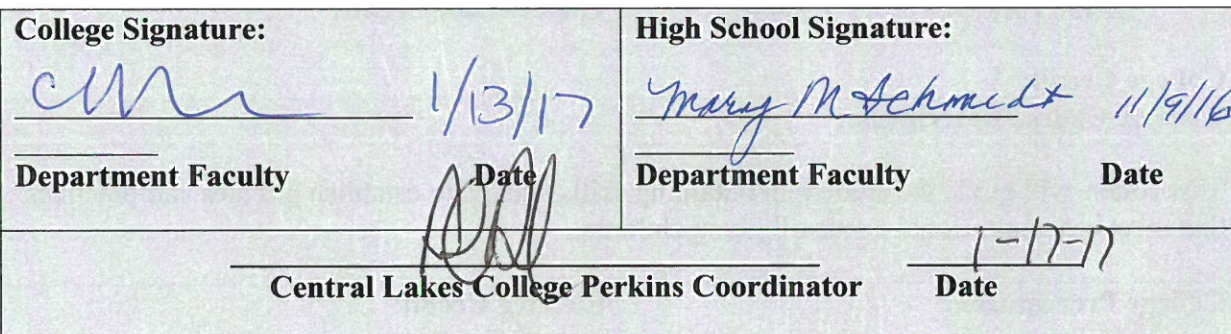 College Signature:
1/13/17
Department Faculty Date
High School Signature:
Mary M Schmidt 11/9/16
Department Faculty Date
1-17-17
Central Lakes College Perkins Coordinator Date